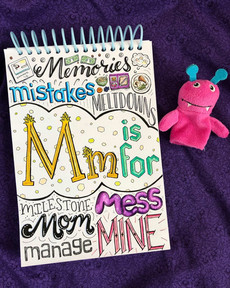 Memories
mistakes
MELTDOWNS
Mm is
for
MILESTONE
mess
Mom
MINE
manage